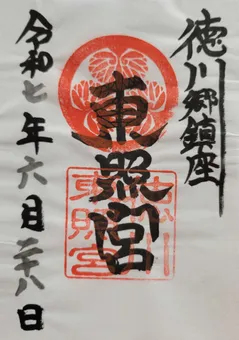 徳川郷鎮座
東照宮
令和七年六月二十八日